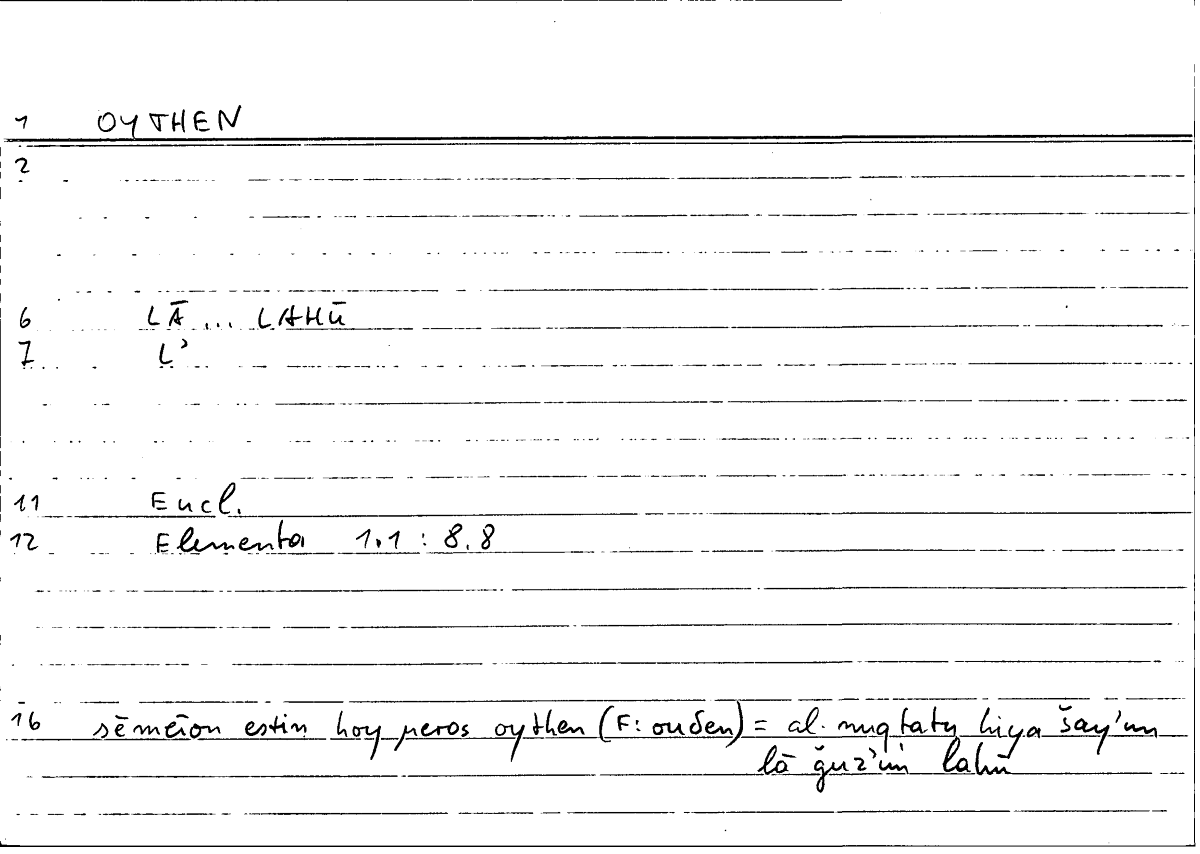 1 OYTHEN
2
6 LĀ ... LAHŪ
7 L'
11 Eucl.
12 Elementa 1.1 : 8.8
16 sēmeion estin hoy meros oythen (F: ouden) = al-nuqtatu hiya šay'un
lā ğuz'un lahū